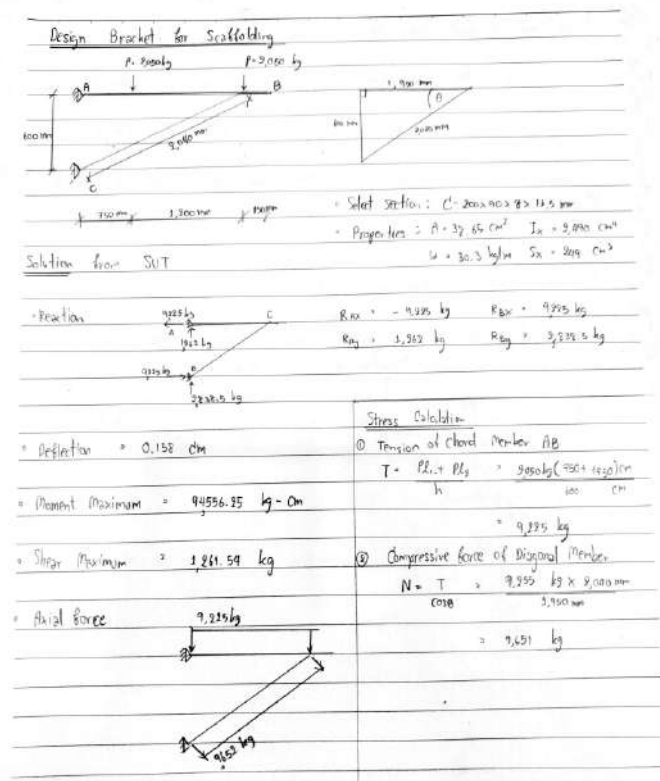 Design Bracket for Scaffolding
P = 2,050 kg P = 2,050 kg
A B
600 mm
2,040 mm
C
750 mm 1,200 mm 150 mm
1,950 mm
θ
600 mm
2,040 mm
• Select section : C - 200 x 90 x 8 x 13.5 mm
• Properties : A = 38.65 cm² Ix = 2,490 cm⁴
W = 30.3 kg/m Sx = 249 cm³
Solution from SUT
• Reaction
9225 kg
A C
1262 kg
B
2,838.5 kg
RAX = - 9,225 kg RBX = 9,225 kg
RAy = 1,262 kg RBy = 2,838.5 kg
• Deflection = 0.138 cm
• Moment Maximum = 94556.25 kg - cm
• Shear Maximum = 1,261.54 kg
• Axial force
9,225 kg
9652 kg
Stress Calculation
① Tension of Chord Member AB
T = Pl1 + Pl2 = 2050 kg (750 + 1950) cm
h 600 cm
= 9,225 kg
② Compressive force of Diagonal Member
N = T = 9,225 kg x 2,040 mm
cosθ 1,950 mm
= 9,651 kg